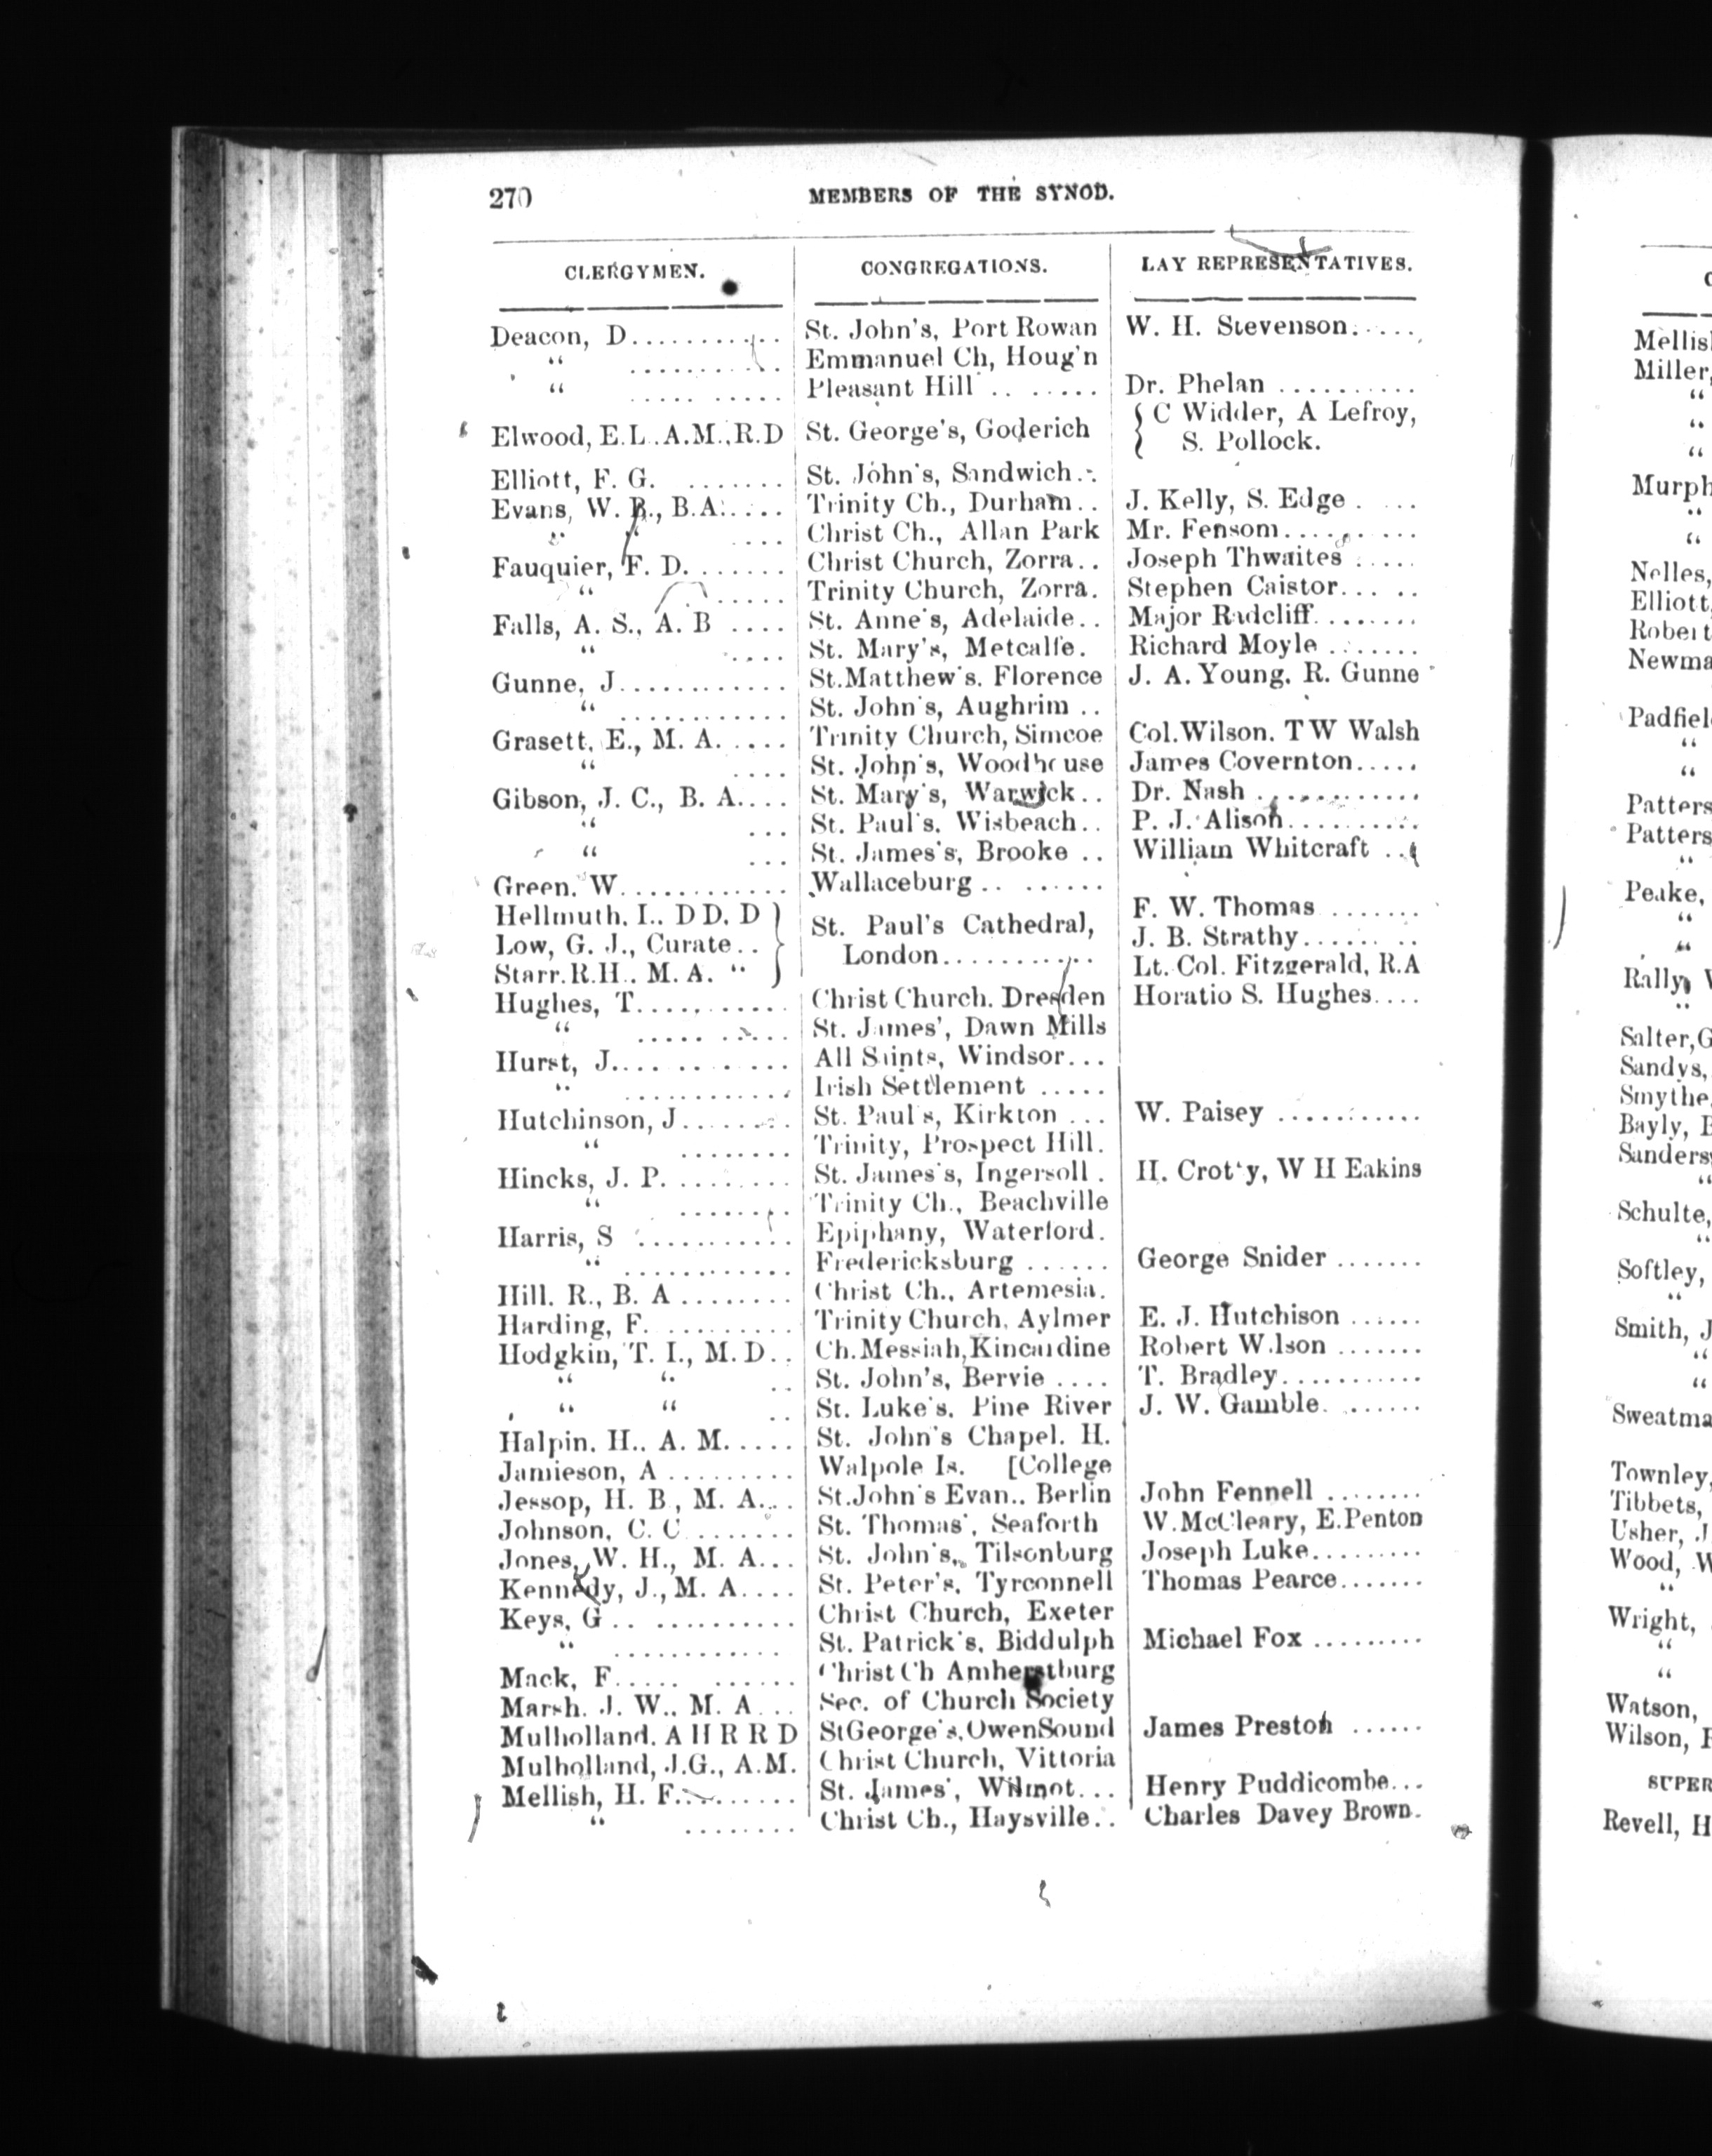 270 MEMBERS OF THE SYNOD.
CLERGYMEN. CONGREGATIONS. LAY REPRESENTATIVES.
Deacon, D.......... St. John's, Port Rowan W. H. Stevenson.....
" .......... Emmanuel Ch, Houg'n
" ..... ..... Pleasant Hill .. ..... Dr. Phelan ..........
Elwood, E.L. A.M., R.D St. George's, Goderich { C Widder, A Lefroy,
S. Pollock.
Elliott, F. G. ....... St. John's, Sandwich..
Evans, W. B., B.A..... Trinity Ch., Durham.. J. Kelly, S. Edge . ...
" " .... Christ Ch., Allan Park Mr. Fensom..........
Fauquier, F. D. ....... Christ Church, Zorra.. Joseph Thwaites .....
" ..... Trinity Church, Zorra. Stephen Caistor... ..
Falls, A. S., A. B .... St. Anne's, Adelaide.. Major Radcliff........
" .... St. Mary's, Metcalfe. Richard Moyle .......
Gunne, J............ St.Matthew's. Florence J. A. Young, R. Gunne
" ............ St. John's, Aughrim ..
Grasett, E., M. A. .... Trinity Church, Simcoe Col.Wilson. T W Walsh
" .... St. John's, Woodhouse James Covernton.....
Gibson, J. C., B. A.... St. Mary's, Warwick.. Dr. Nash ............
" ... St. Paul's. Wisbeach.. P. J. Alison..........
" ... St. James's, Brooke .. William Whitcraft ..
Green. W............ Wallaceburg .. ......
Hellmuth, I.. D D. D } St. Paul's Cathedral, F. W. Thomas .......
Low, G. J., Curate.. London........... J. B. Strathy...... ..
Starr. R.H.. M. A. " Lt. Col. Fitzgerald, R.A
Hughes, T........... Christ Church. Dresden Horatio S. Hughes....
" ..... ..... St. James', Dawn Mills
Hurst, J............ All Saints, Windsor...
" ............ Irish Settlement .....
Hutchinson, J........ St. Paul's, Kirkton ... W. Paisey ...........
" ........ Trinity, Prospect Hill.
Hincks, J. P. ........ St. James's, Ingersoll . H. Crotty, W H Eakins
" ........ Trinity Ch., Beachville
Harris, S ........... Epiphany, Waterford.
" ............ Fredericksburg ...... George Snider .......
Hill. R., B. A ........ Christ Ch., Artemesia.
Harding, F. ......... Trinity Church, Aylmer E. J. Hutchison ......
Hodgkin, T. I., M. D.. Ch. Messiah, Kincardine Robert Wilson .......
" " .. St. John's, Bervie .... T. Bradley...........
" " .. St. Luke's. Pine River J. W. Gamble. ......
Halpin. H.. A. M. .... St. John's Chapel. H.
Jamieson, A ......... Walpole Is. [College
Jessop, H. B., M. A... St.John's Evan.. Berlin John Fennell ........
Johnson, C. C ....... St. Thomas', Seaforth W. McCleary, E.Penton
Jones, W. H., M. A... St. John's, Tilsonburg Joseph Luke.........
Kennedy, J., M. A.... St. Peter's, Tyrconnell Thomas Pearce.......
Keys, G .. .......... Christ Church, Exeter
" ............ St. Patrick's, Biddulph Michael Fox .........
Mack, F..... ...... Christ Ch Amherstburg
Marsh. J. W.. M. A... Sec. of Church Society
Mulholland. A H R R D St George's, Owen Sound James Preston ......
Mulholland, J.G., A.M. Christ Church, Vittoria
Mellish, H. F......... St. James', Wilmot... Henry Puddicombe...
" ........ Christ Ch., Haysville.. Charles Davey Brown.
Mellis
Miller,
"
"
"
Murph
"
"
Nelles,
Elliott,
Robert
Newma
Padfiel
"
"
Patters
Patters
"
Peake,
"
"
Rally,
"
Salter, G
Sandys,
Smythe,
Bayly, B
Sanders
"
Schulte,
"
Softley,
"
Smith, J
"
"
Sweatma
Townley,
Tibbets,
Usher, J.
Wood, W
"
Wright,
"
"
Watson,
Wilson,
SUPER
Revell, H